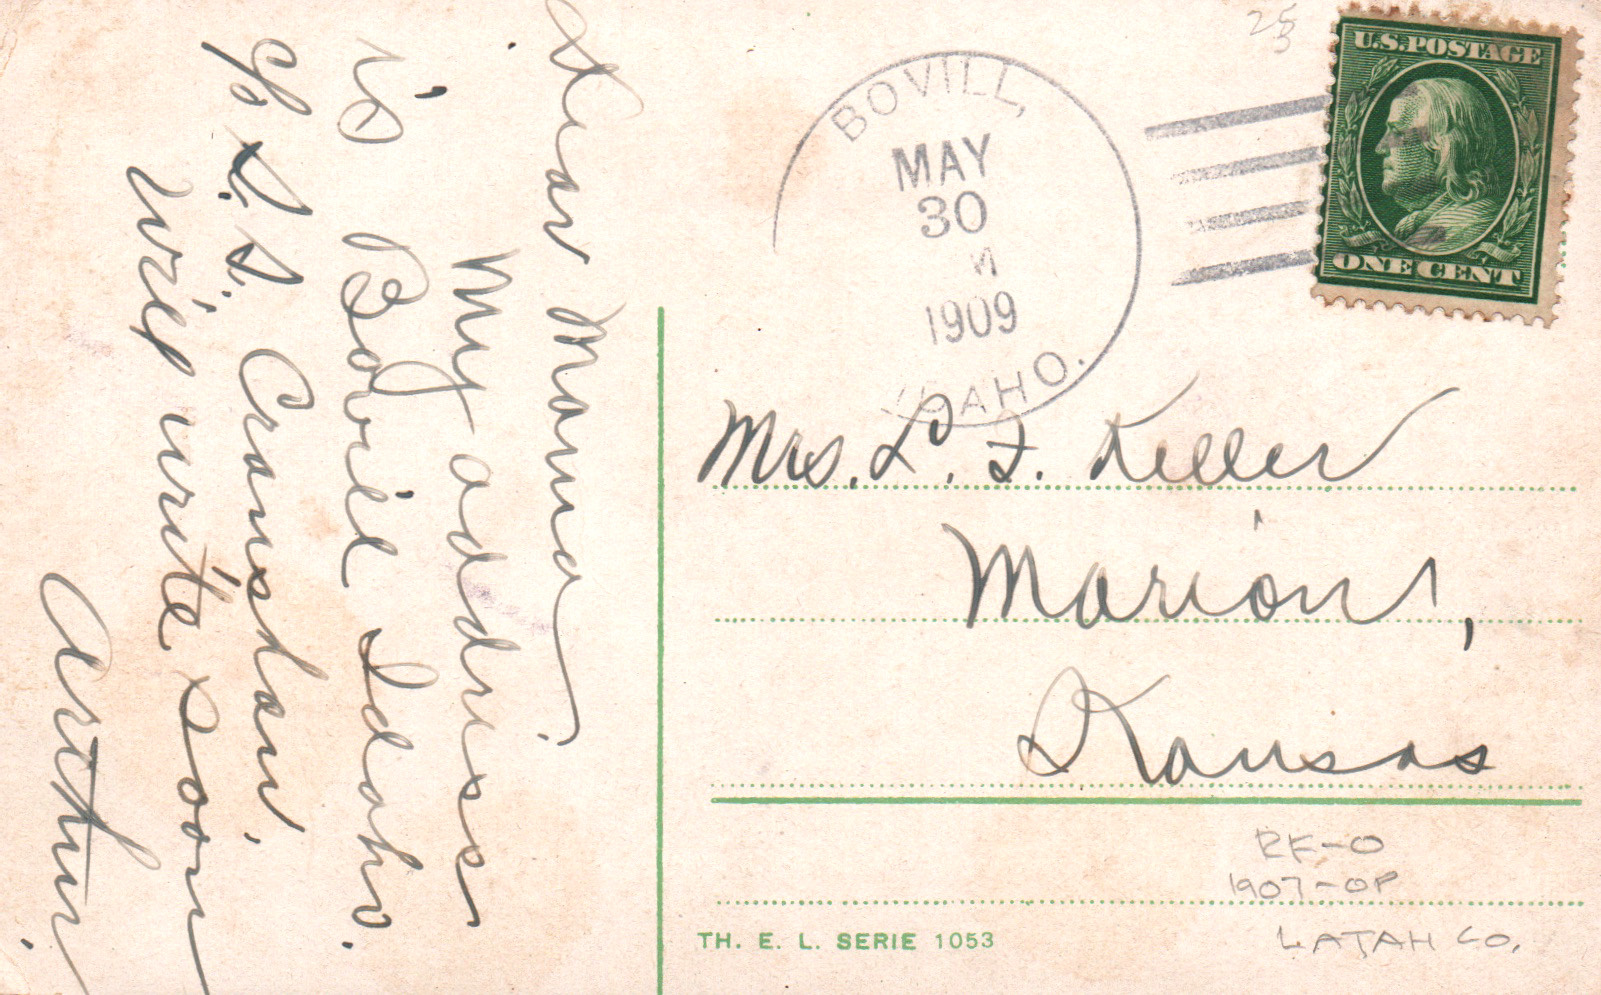 Dear Mama.
My address
is Bovill Idaho.
c/o L. S. Cranshaw.
Will write soon
Arthur.
25
3
U.S. POSTAGE
ONE CENT
BOVILL,
MAY
30
M
1909
IDAHO.
Mrs. L. F. Keller
Marion,
Kansas
RF-O
1907-OP
LATAH CO.
TH. E. L. SERIE 1053